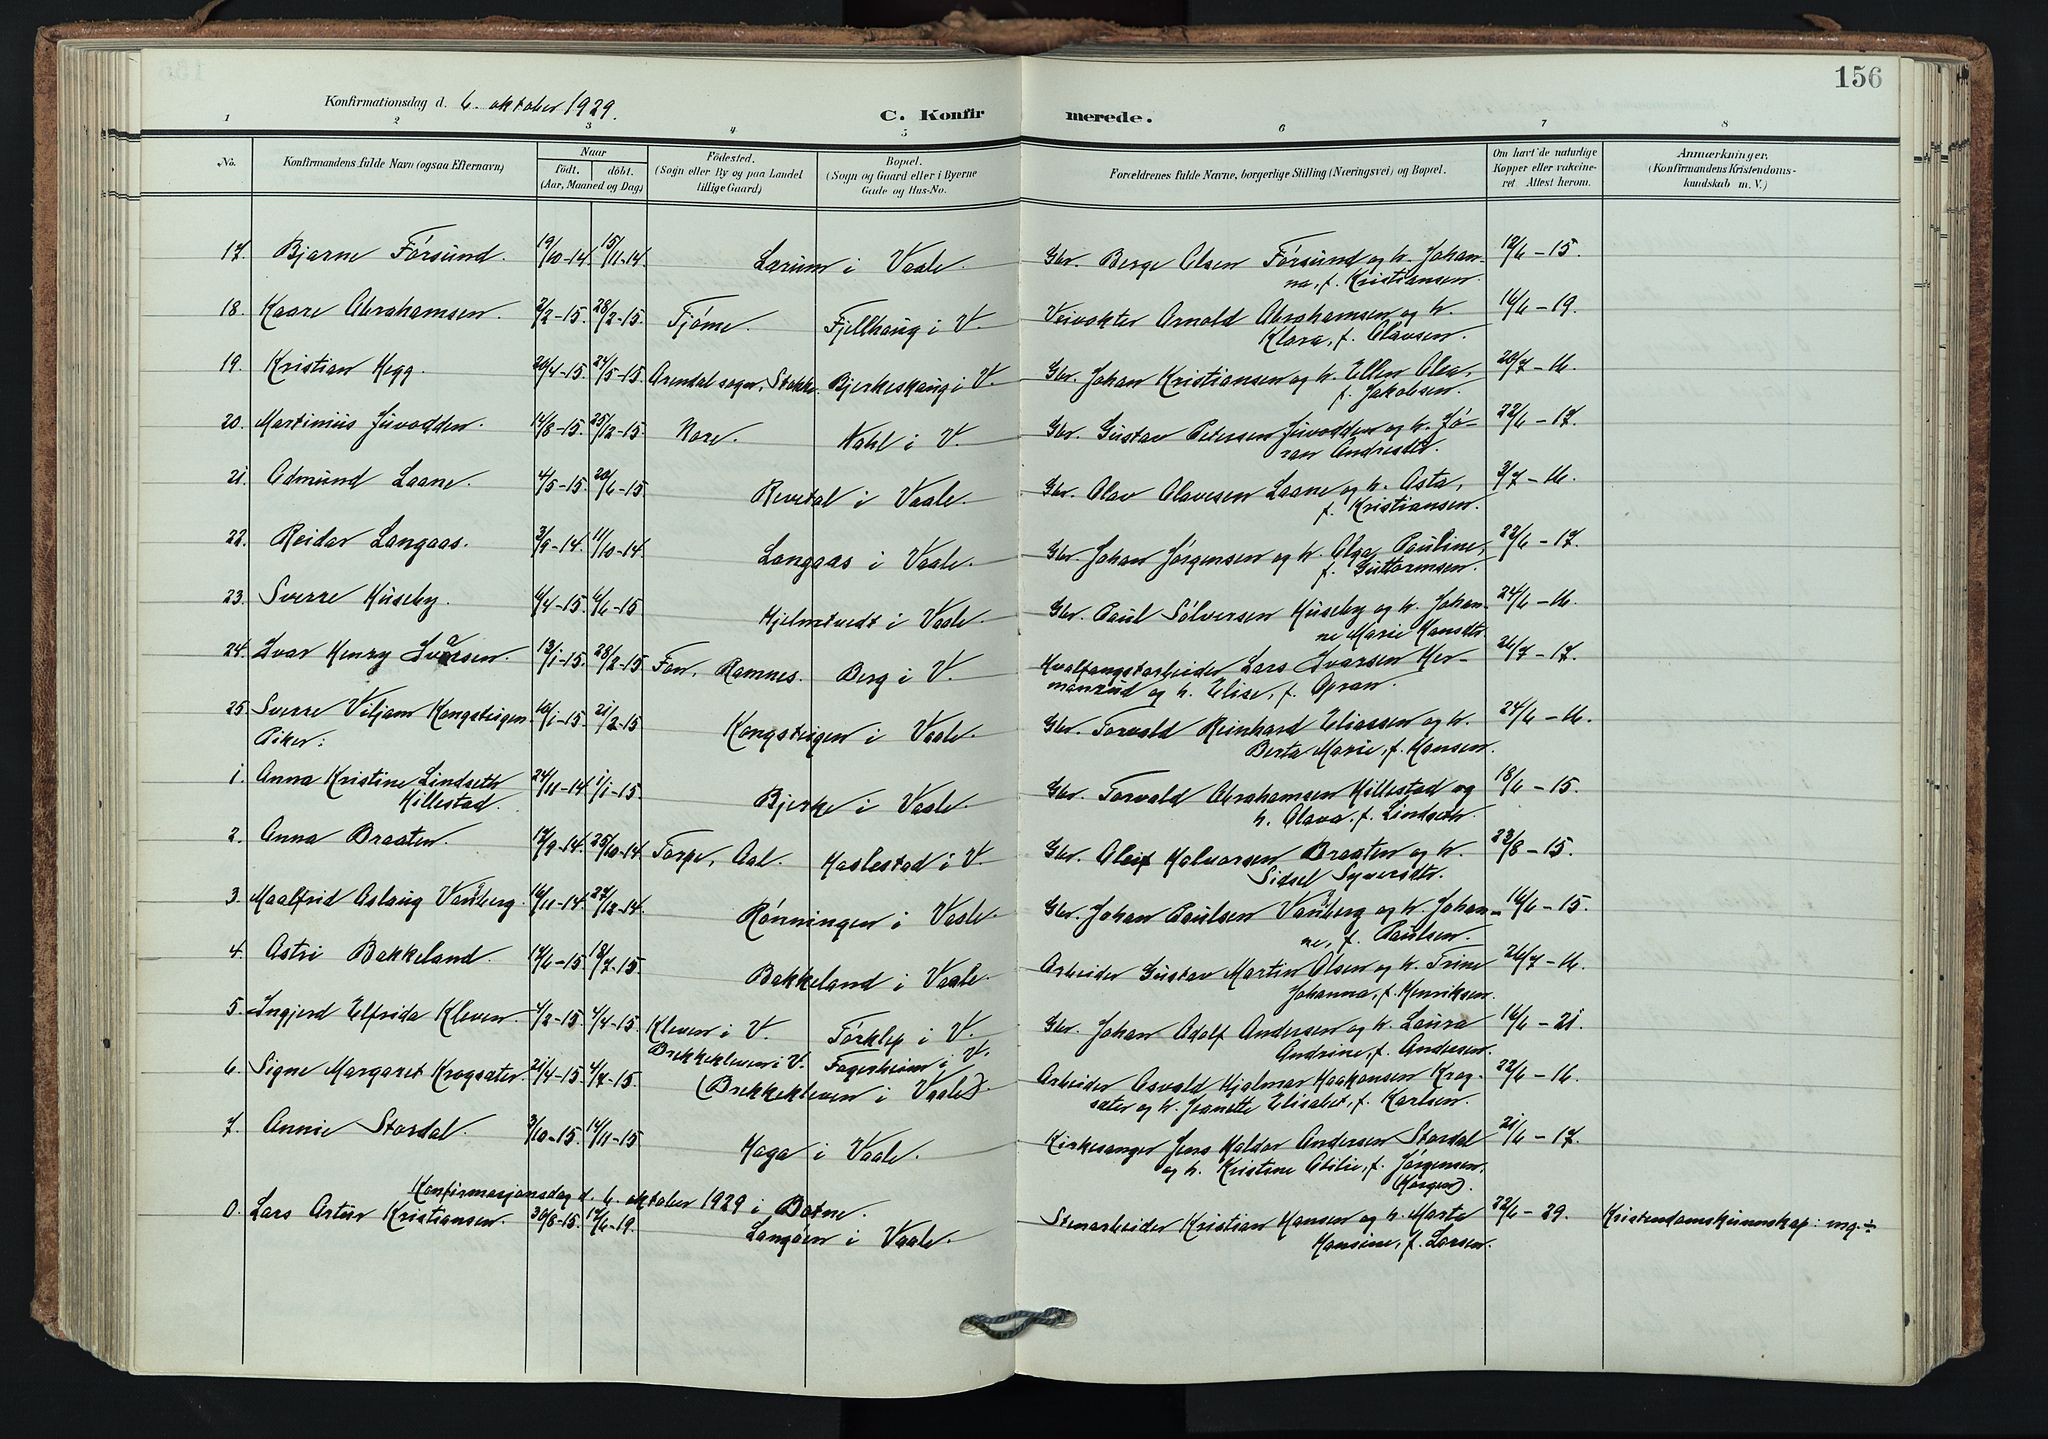 156
Konfirmationsdag d. 6. oktober 1929.
C. Konfirmerede.
1 2 3 4 5 6 7 8
No.
Konfirmandens fulde Navn (ogsaa Efternavn)
Naar
födt. döbt.
(Aar, Maaned og Dag)
Födested.
(Sogn eller By og paa Landet
tillige Gaard)
Bopæl.
(Sogn og Gaard eller i Byerne
Gade og Hus-No.
Forældrenes fulde Navne, borgerlige Stilling (Næringsvei) og Bopæl.
Om havt de naturlige
Kopper eller vakcine-
ret Attest herom.
Anmærkninger.
(Konfirmandens Kristendoms-
kundskab m. V.)
17. Bjarne Førsund. 19/10-14. 15/11-14. Lærum i Vaale. Gbr. Berge Olsen Førsund og h. Johan- 12/6-15.
na, f. Kristiansen.
18. Kaare Abrahamsen. 2/2-15. 28/2-15. Tjøme. Fjellhaug i V. Veivokter Arnold Abrahamsen og h. 16/6-19.
Klara, f. Olavsen.
19. Kristian Hegg. 20/4-15. 24/5-15. Arendal sogn, Stokke. Bjerkeskaug i V. Gbr. Johan Kristiansen og h. Ellen Olea, 20/7-16.
f. Jakobsen.
20. Martinius Juvodden. 14/8-15. 25/12-15. Nore. Nahl i V. Gbr. Gustav Petersen Juvodden og h. Jø- 22/6-17.
ran Andresdtr.
21. Odmund Laane. 4/5-15. 20/6-15. Revetal i Vaale. Gbr. Olav Olavesen Laane og h. Asta, 3/7-16.
f. Kristiansen.
22. Reidar Langaas. 3/9-14. 11/10-14. Langaas i Vaale. Gbr. Johan Jørgensen og h. Olga Pauline, 22/6-17.
f. Guttormsen.
23. Sverre Huseby. 4/4-15. 6/6-15. Hjelmtvedt i Vaale. Gbr. Paul Sølversen Huseby og h. Johan- 24/6-16.
ne Marie Hansdtr.
24. Ivar Henry Ivarsen. 13/1-15. 28/2-15. Fon, Ramnes. Berg i V. Hvalfangstarbeider Lars Ivarsen Her- 26/7-17.
manrud og h. Elise, f. Opran.
25. Sverre Viljam Kongsteigen. 10/1-15. 21/2-15. Kongsteigen i Vaale. Gbr. Torvald Reinhard Eliassen og h. 24/6-16.
Berta Marie, f. Hansen.
Piker:
1. Anna Kristine Lindseth 24/11-14. 1/1-15. Bjerke i Vaale. Gbr. Torvald Abrahamsen Hillestad og 18/6-15.
Hillestad. h. Olava, f. Lindseth.
2. Anna Braaten. 17/9-14. 25/10-14. Torpe, Aal. Haslestad i V. Gbr. Oleif Halvorsen Braaten og h. 23/8-15.
Sidsel Syversdtr.
3. Maalfrid Aslaug Vanberg. 16/11-14. 27/12-14. Rønningen i Vaale. Gbr. Johan Paulsen Vanberg og h. Johan- 16/6-15.
ne, f. Paulsen.
4. Astri Bakkeland. 14/6-15. 18/7-15. Bakkeland i Vaale. Arbeider Gustav Martin Olsen og h. Trine 26/7-16.
Johanna, f. Henriksen.
5. Ingjerd Elfrida Kleven. 4/2-15. 4/4-15. Kleven i V. Torklep i V. Gbr. Johan Adolf Andersen og h. Laura 16/6-21.
Andrine, f. Andersen.
6. Signe Margaret Krogsæter. 21/4-15. 4/7-15. Brekkekleven i V. Fagerheim i V. Arbeider Osvald Hjalmar Haakonsen Krog- 22/6-16.
(Brekkekleven i Vaale). sæter og h. Jeanette Elisabet, f. Karlsen.
7. Annie Stordal. 3/10-15. 14/11-15. Haga i Vaale. Kirkesanger Jens Haldor Andersen Stordal 21/6-17.
og h. Kristine Otilie, f. Jørgensen.
(Horgen).
Konfirmasjonsdag d. 6. oktober 1929 i Botne.
0. Lars Artur Kristiansen. 30/8-15. 17/6-19. Langøen i Vaale. Stenarbeider Kristian Hansen og h. Marte 22/6-29. Kristendomskunnskap: mg.÷
Hansine, f. Larsen.